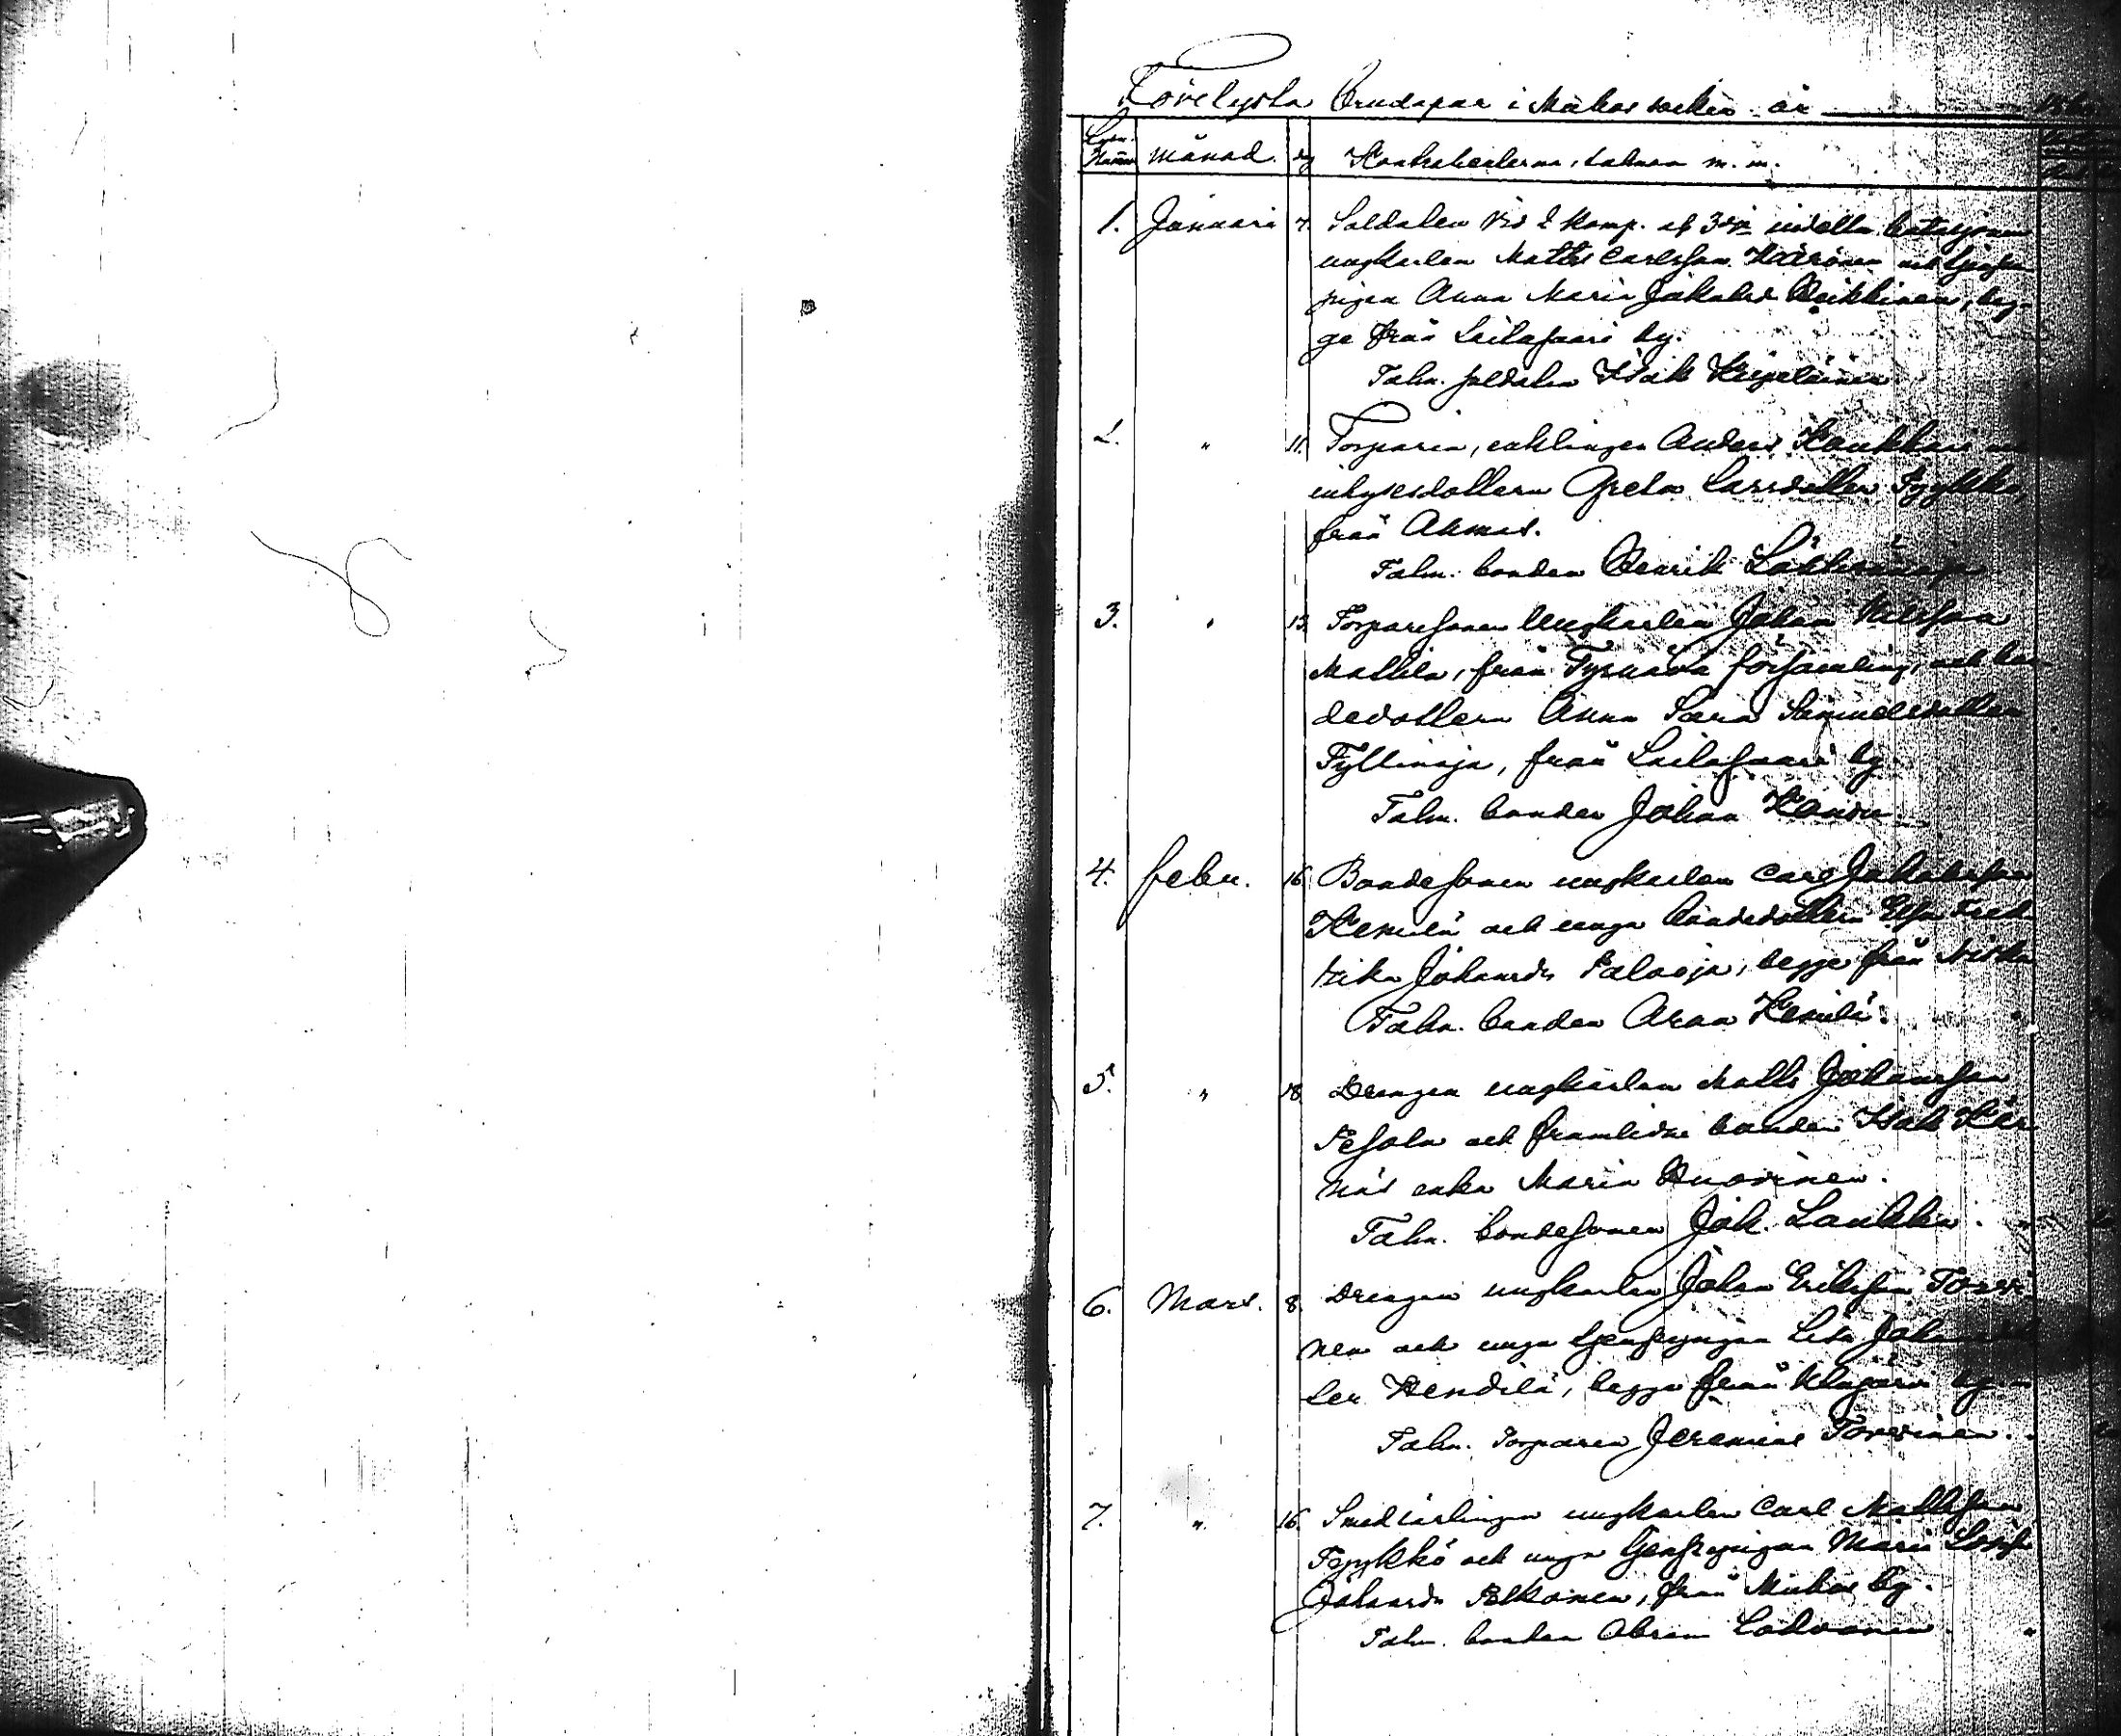 Förelysta Brudapar i Muhos socken år
Löp. Num månad. dag Kontrahenterna, talman m. m.
1. Januari 7. Soldaten vid 2 komp. af indelta bataljonen
ungkarlen Matts Carlsson Kärönen och tjenste
pigan Anna Maria Jakobsd. Heikkinen, beg-
ge från Laitasaari by.
Talm. soldaten Isak Keipeläinen
2. " 11. Torparen, enklingen Anders Kaukkari
inhysesdottern Greta Larsdotter Pyykkö,
från Ahmas.
Talm. bonden Henrik
3. " 13. Torparesonen Ungkarlen Johan Nilsson
Mattila, från Tyrnävä församling, och bon
dedottern Anna Sara Samuelsdotter
Tyllinoja, från Laitasaari by
Talm. bonden Johan
4. febru. 16 Bondesonen ungkarlen Carl Jakobsson
Kemilä och unga bondedottern Elsa Fred
rika Johansdr Palooja, begge från Niska
Talm. bonden Aran Kemilä.
5. " 18 Drengen ungkarlen Matts Johansson
Pesola och framlidne bonden Isak Kär
näs enka Maria Huovinen.
Talm. bondesonen Jak. Laukka.
6. Mars. 8. Drengen ungkarlen Johan Eriksson Torvi
nen och unga tjenstepigan Lisa Johansdot
ter Hendilä, begge från by
Talm. torparen Jeremias Torvinen.
7. " 16. Smedlärlingen ungkarlen Carl Mattsson
Pyykkö och unga tjenstepigan Maria Lovisa
Johansdr Pelkonen, från Muhos by.
Talm. bonden Abram